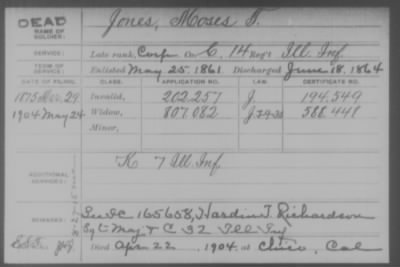 DEAD
NAME OF SOLDIER:
Jones, Moses T.
SERVICE:
Late rank, Corp Co C, 14 Reg't Ill. Inf.
TERM OF SERVICE:
Enlisted May 25, 1861 Discharged June 18, 1864
DATE OF FILING. CLASS. APPLICATION NO. LAW. CERTIFICATE NO.
1875 29 Invalid, 202.257 J. 194.549
1904 May 24 Widow, 807.082 588.448
Minor,
ADDITIONAL SERVICES:
K 7 Ill. Inf.
REMARKS:
165658, Hardin T. Richardson
Sgt Maj & C 32 Ill Inf
Died Apr. 22, 1904, at Chico, Cal